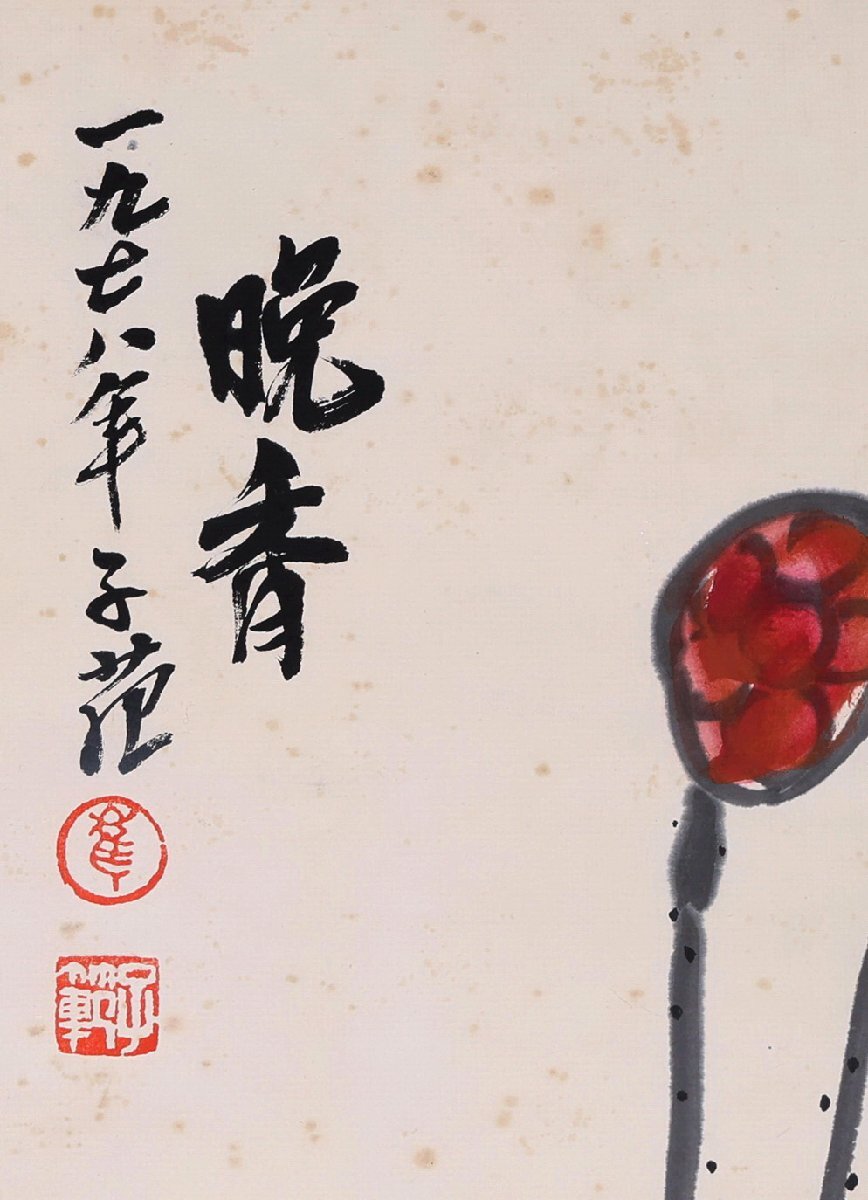 晚香
一九七八年 子范
子範